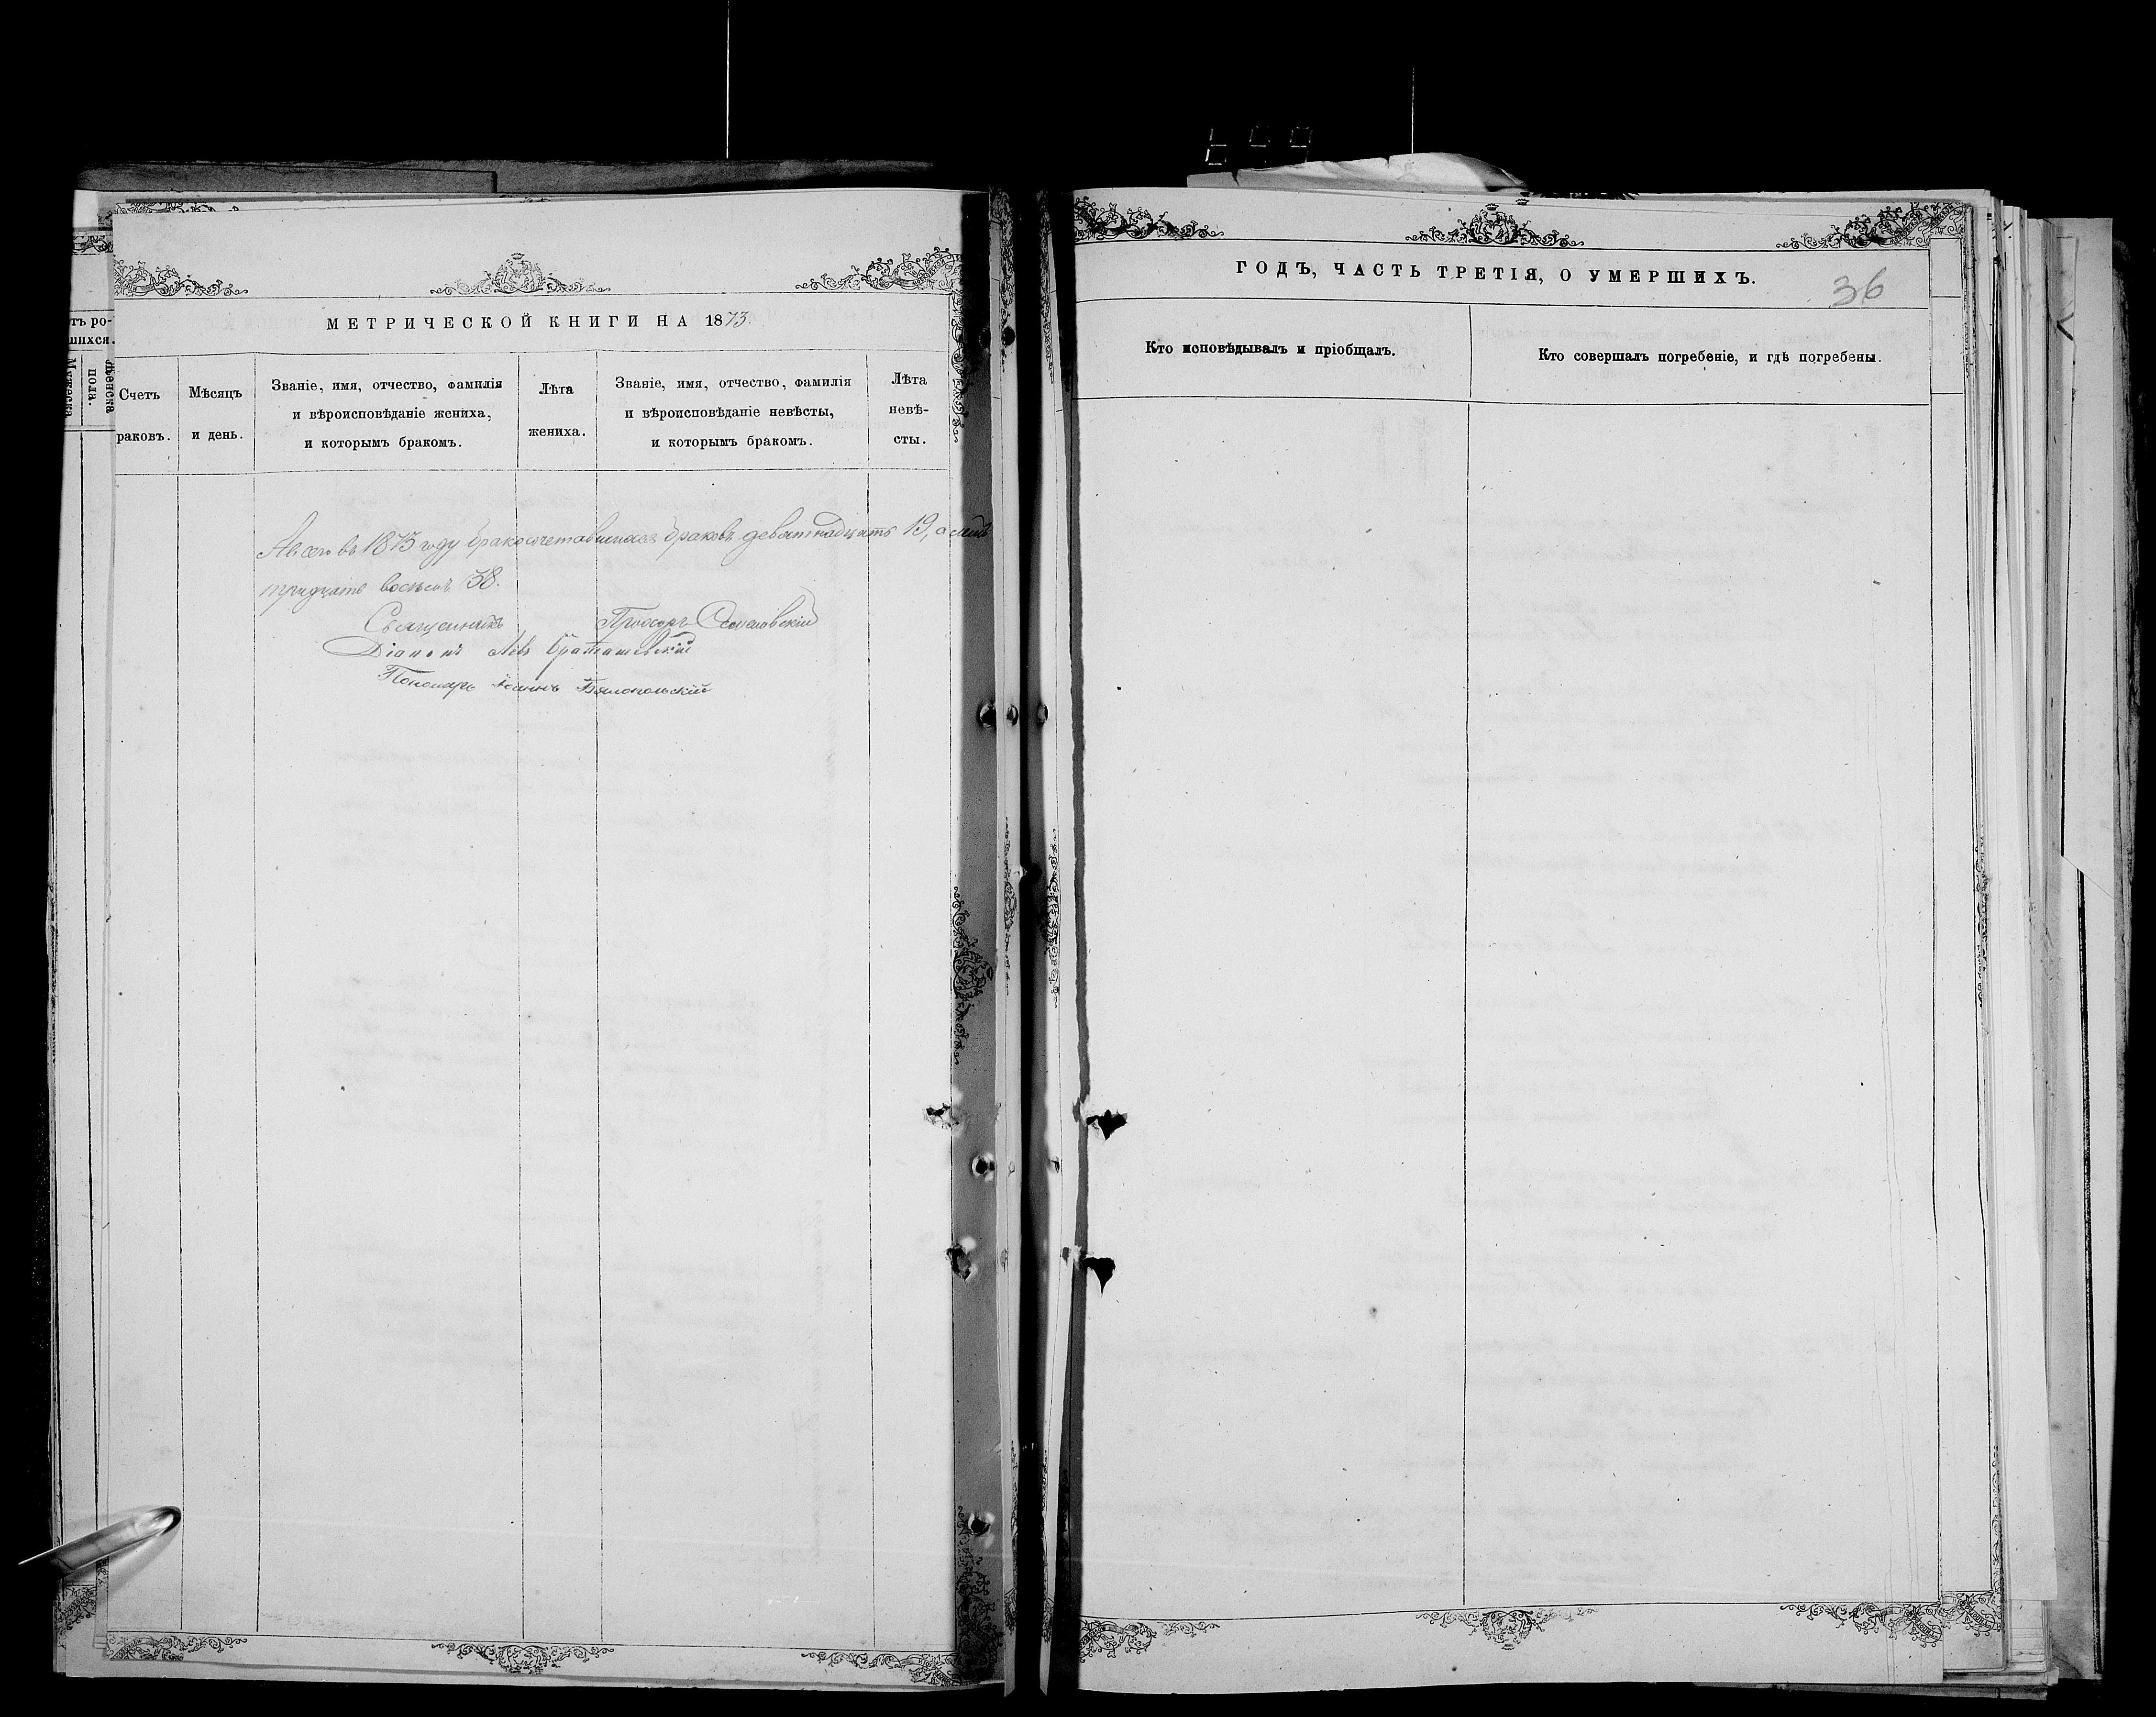 МЕТРИЧЕСКОЙ КНИГИ НА 1873.
тъ ро-
шихся.
Мужеска
пола.
Женска
Счетъ
раковъ.
Мѣсяцъ
и день.
Званіе, имя, отчество, фамилія
и вѣроисповѣданіе жениха,
и которымъ бракомъ.
Лѣта
жениха.
Званіе, имя, отчество, фамилія
и вѣроисповѣданіе невѣсты,
и которымъ бракомъ.
Лѣта
невѣ-
сты.
А всего въ 1873 году бракосочетавшихся браковъ девятнадцать 19, а лицъ
тридцать восемь 38.
Священникъ
Діаконъ Левъ
Пономарь Іоаннъ Бялопольскій
ГОДЪ, ЧАСТЬ ТРЕТІЯ, О УМЕРШИХЪ.
36
Кто исповѣдывалъ и пріобщалъ.
Кто совершалъ погребеніе, и гдѣ погребены.